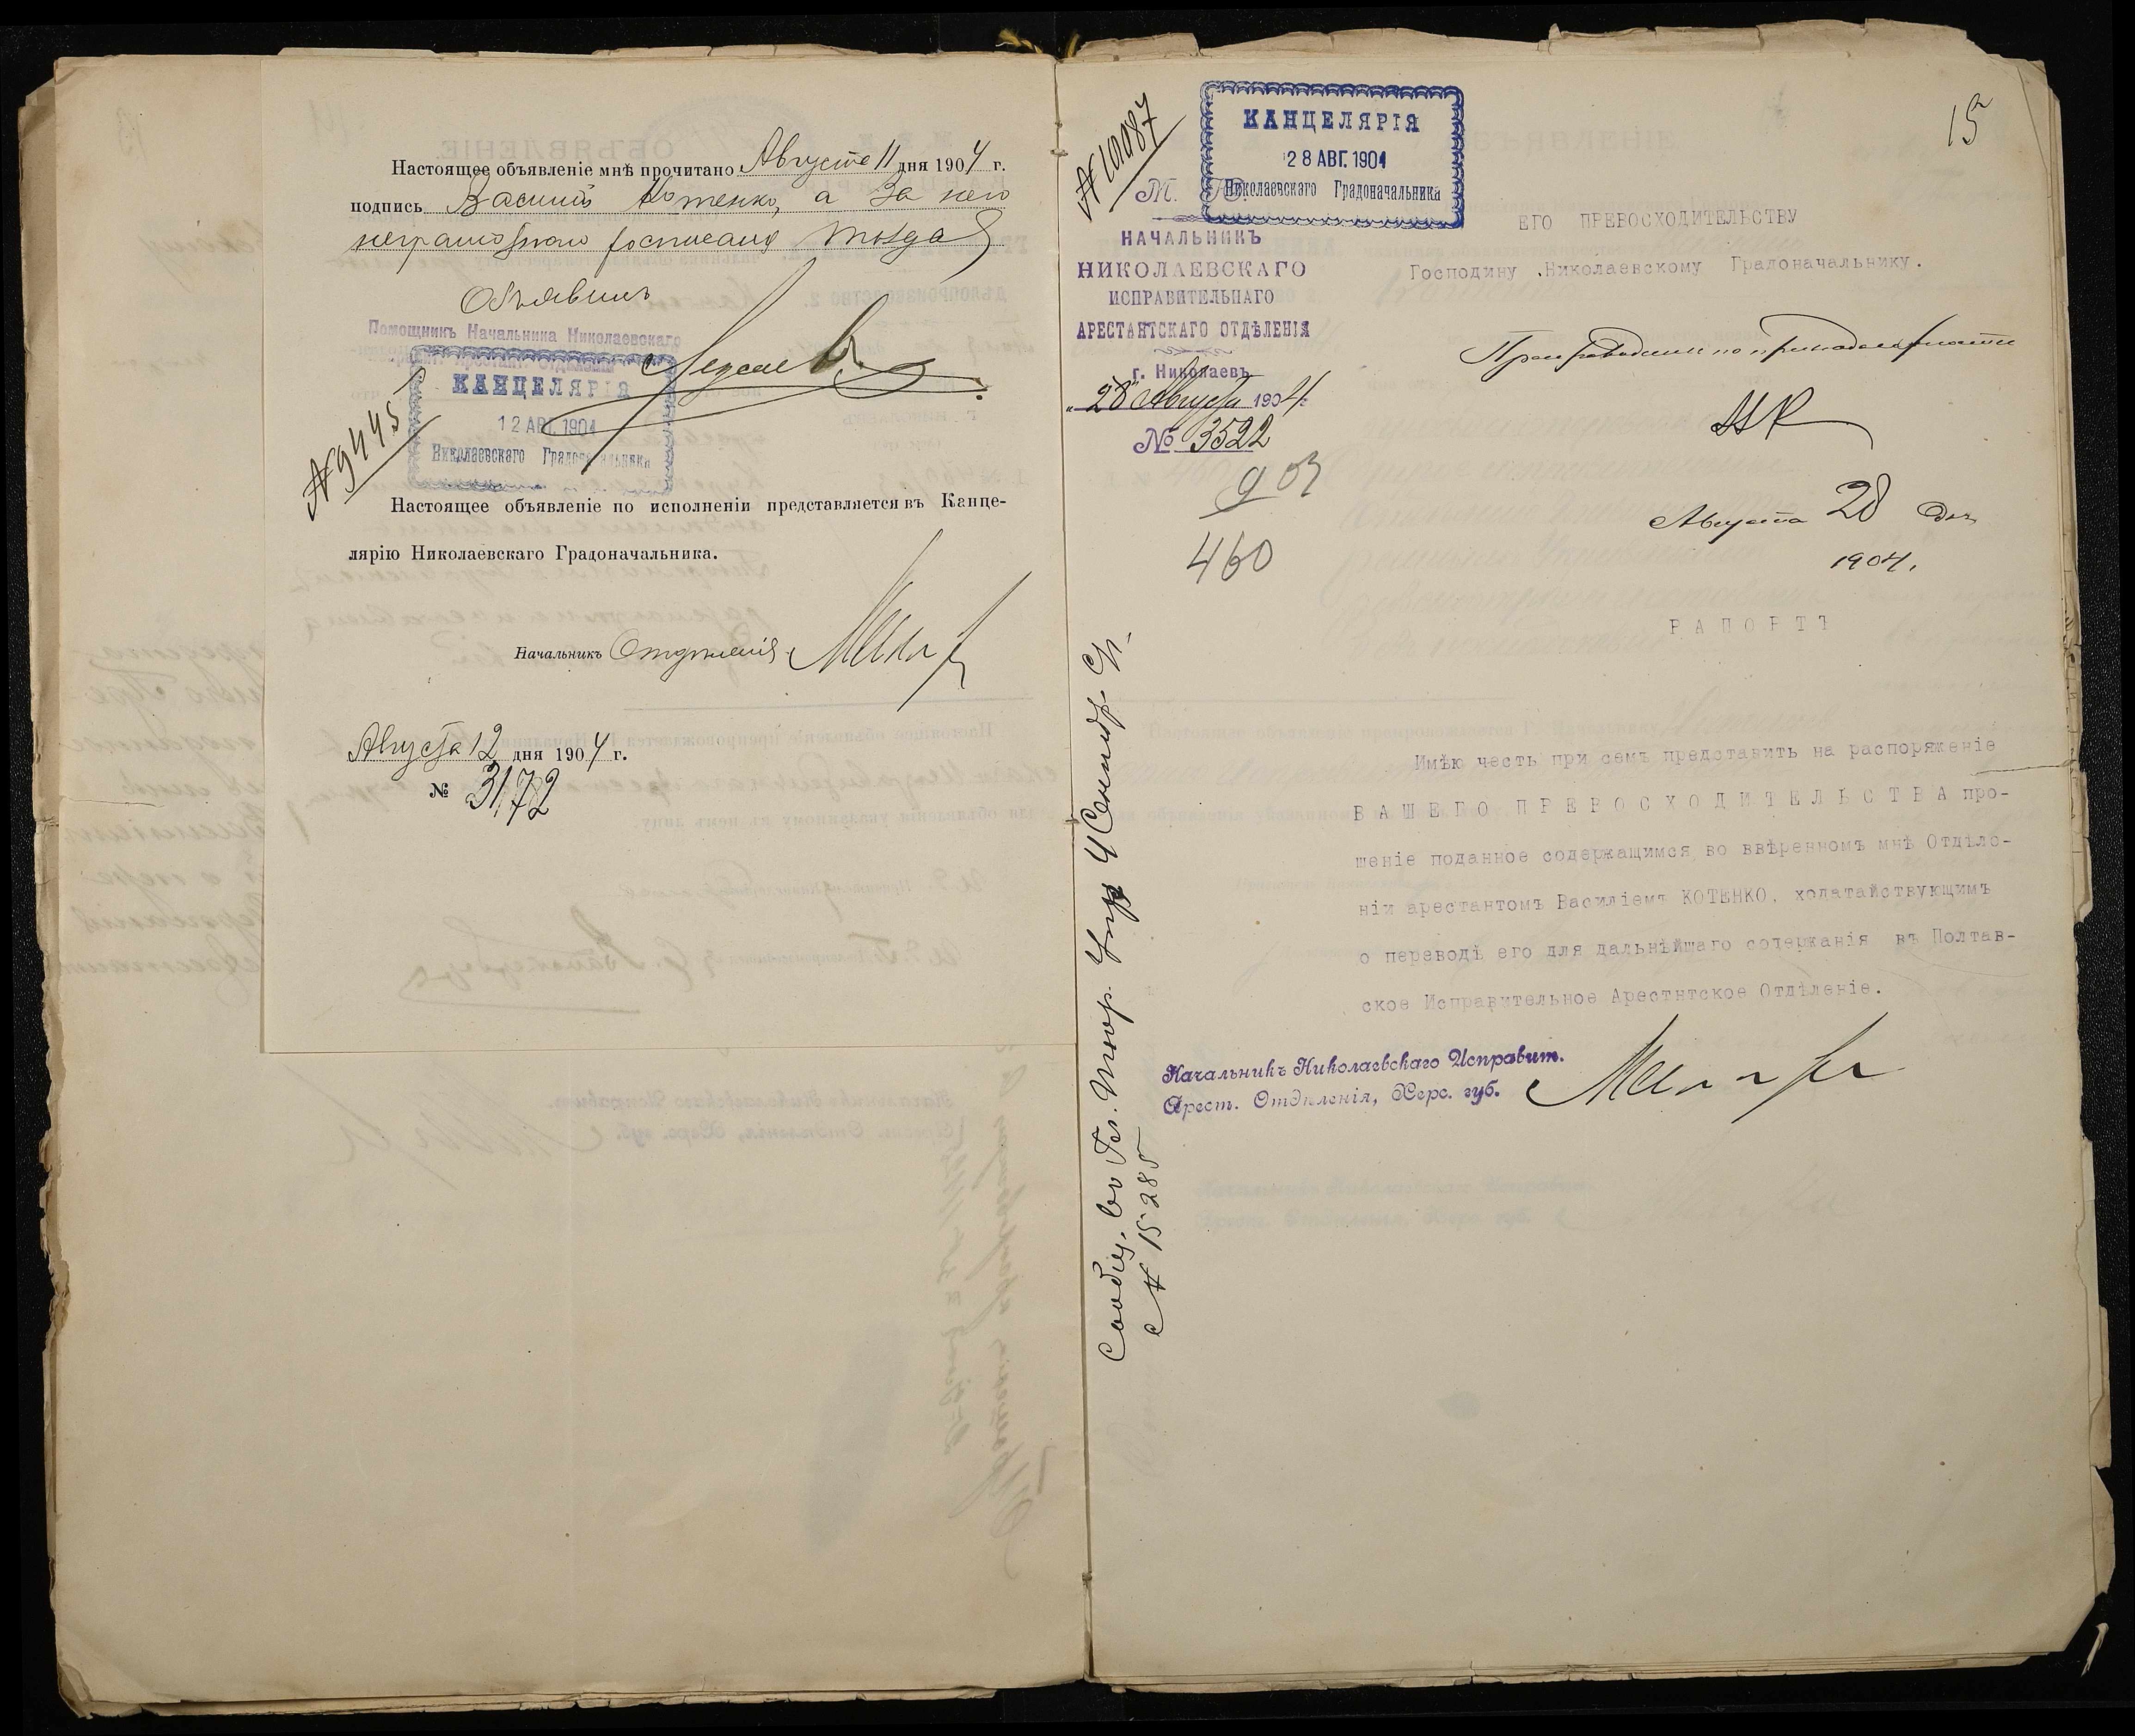 Настоящее объявленіе мнѣ прочитано Августа 11 дня 1904 г.
подпись Василій Котенко, а за него
неграмотнаго росписался
Объявилъ
Помощникъ Начальника Николаевскаго
КАНЦЕЛЯРІЯ
12 АВГ. 1904
Николаевскаго Градоначальника
№ 9445
Настоящее объявленіе по исполненіи представляется въ Канце-
лярію Николаевскаго Градоначальника.
Начальникъ Отдѣленія
Августа 12 дня 1904 г.
№ 3172
15
№ 10087
КАНЦЕЛЯРІЯ
28 АВГ. 1904
Николаевскаго Градоначальника
М. Ю.
НАЧАЛЬНИКЪ
НИКОЛАЕВСКАГО
ИСПРАВИТЕЛЬНАГО
АРЕСТАНТСКАГО ОТДѢЛЕНІЯ
г. Николаевъ
„28" Августа 1904 г.
№ 3522
903
460
ЕГО ПРЕВОСХОДИТЕЛЬСТВУ
Господину Николаевскому Градоначальнику.
Препроводить по принадлежности
Августа 28 дня
1904.
РАПОРТЪ
Имѣю честь при семъ представить на распоряженіе
ВАШЕГО ПРЕВОСХОДИТЕЛЬСТВА про-
шеніе поданное содержащимся во ввѣренномъ мнѣ Отдѣле-
ніи арестантомъ Василіемъ КОТЕНКО, ходатайствующимъ
о переводѣ его для дальнѣйшаго содержанія въ Полтав-
ское Исправительное Арестнтское Отдѣленіе.
Начальникъ Николаевскаго Исправит.
Арест. Отдѣленія, Херс. губ.
Сообщ. въ Гл. Тюр. Упр. 4 Сентяб.
№ 15285